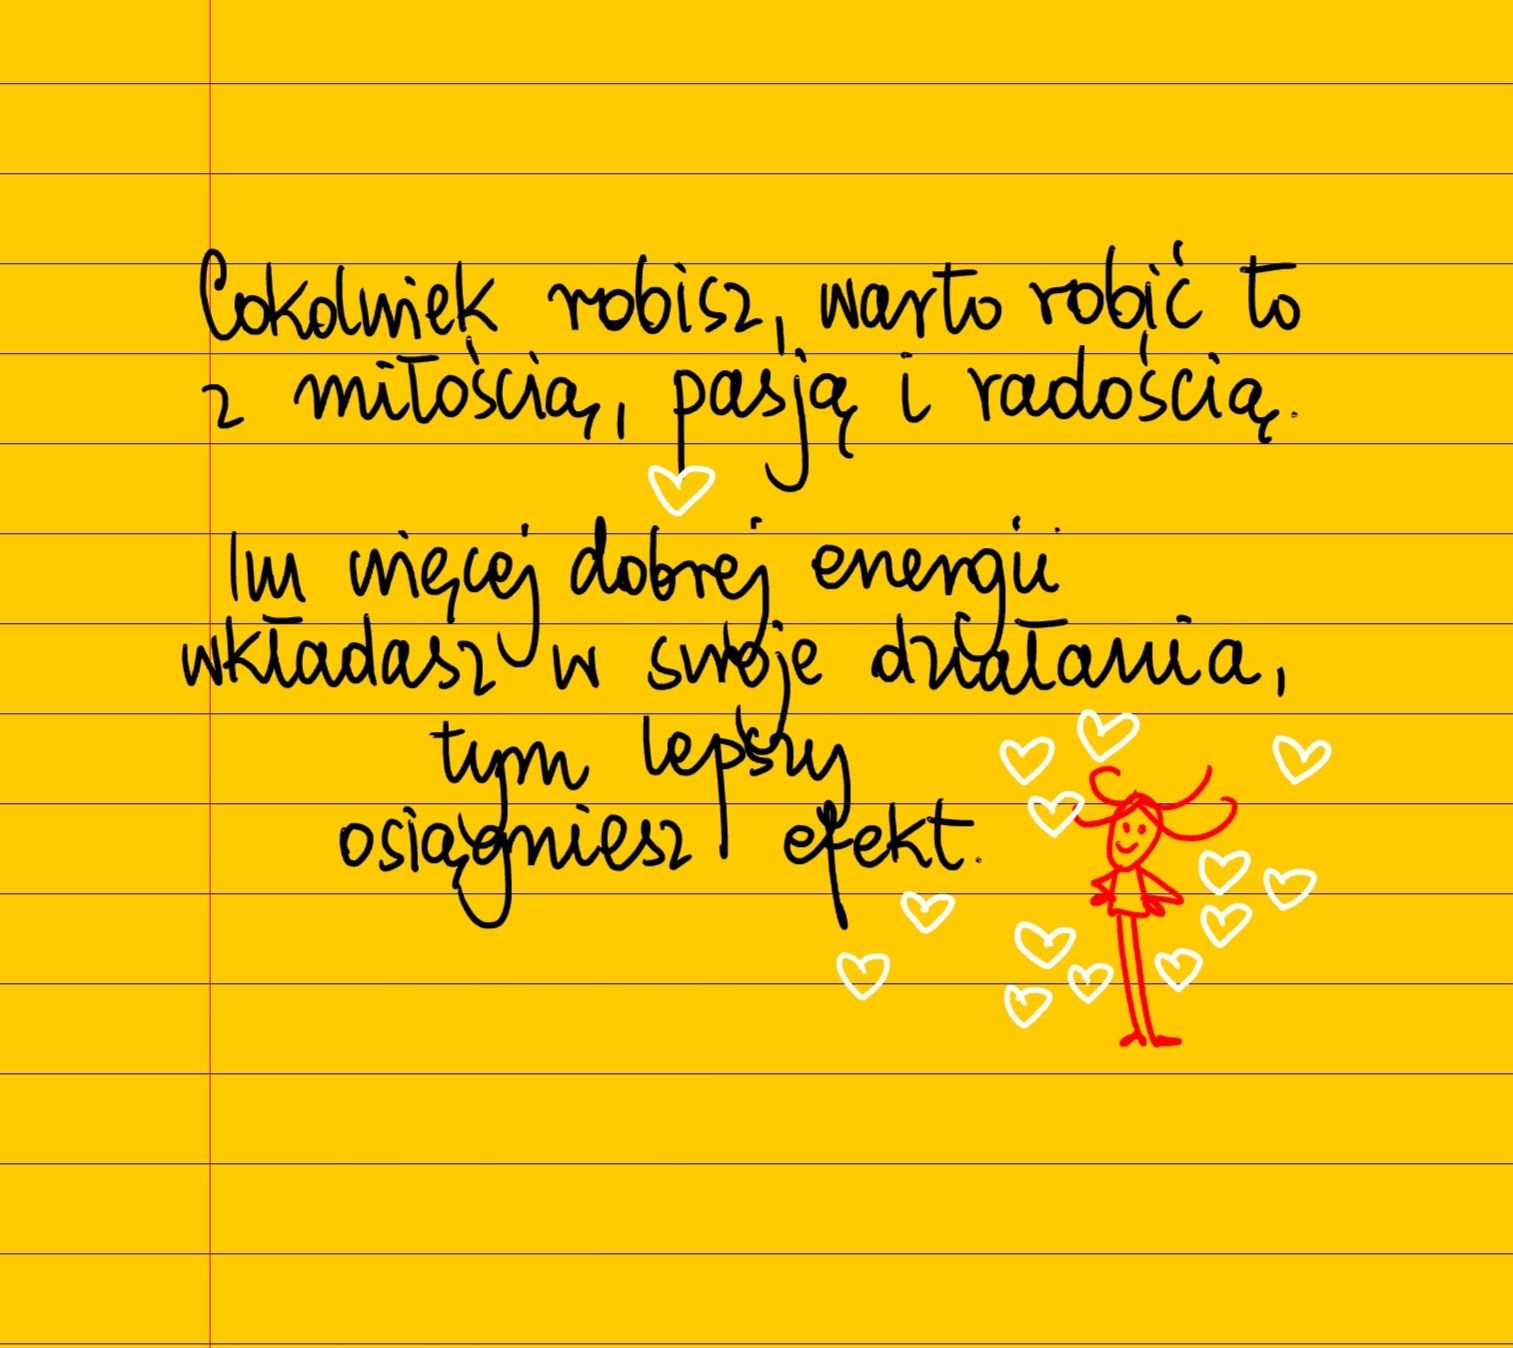 Cokolwiek robisz, warto robić to
z miłością, pasją i radością.
Im więcej dobrej energii
wkładasz w swoje działania,
tym lepszy
osiągniesz efekt.